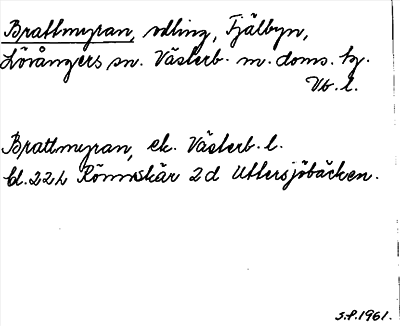 Brattmyran, odling, Fjälbyn,
Lövångers sn. Västerb. m. doms. tg.
Vb. l.
Brattmyran, ek. Västerb. l.
bl. 22 L Rönnskär 2 d Uttersjöbäcken.
S.P. 1961.